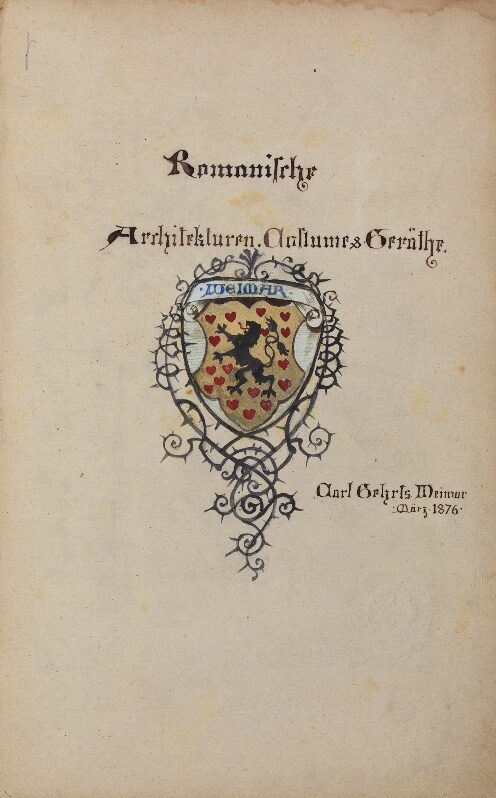 Romanische
Architekturen. Costume & Geräthe.
·WEIMAR·
Carl Gehrts Weimar
·März·1876·